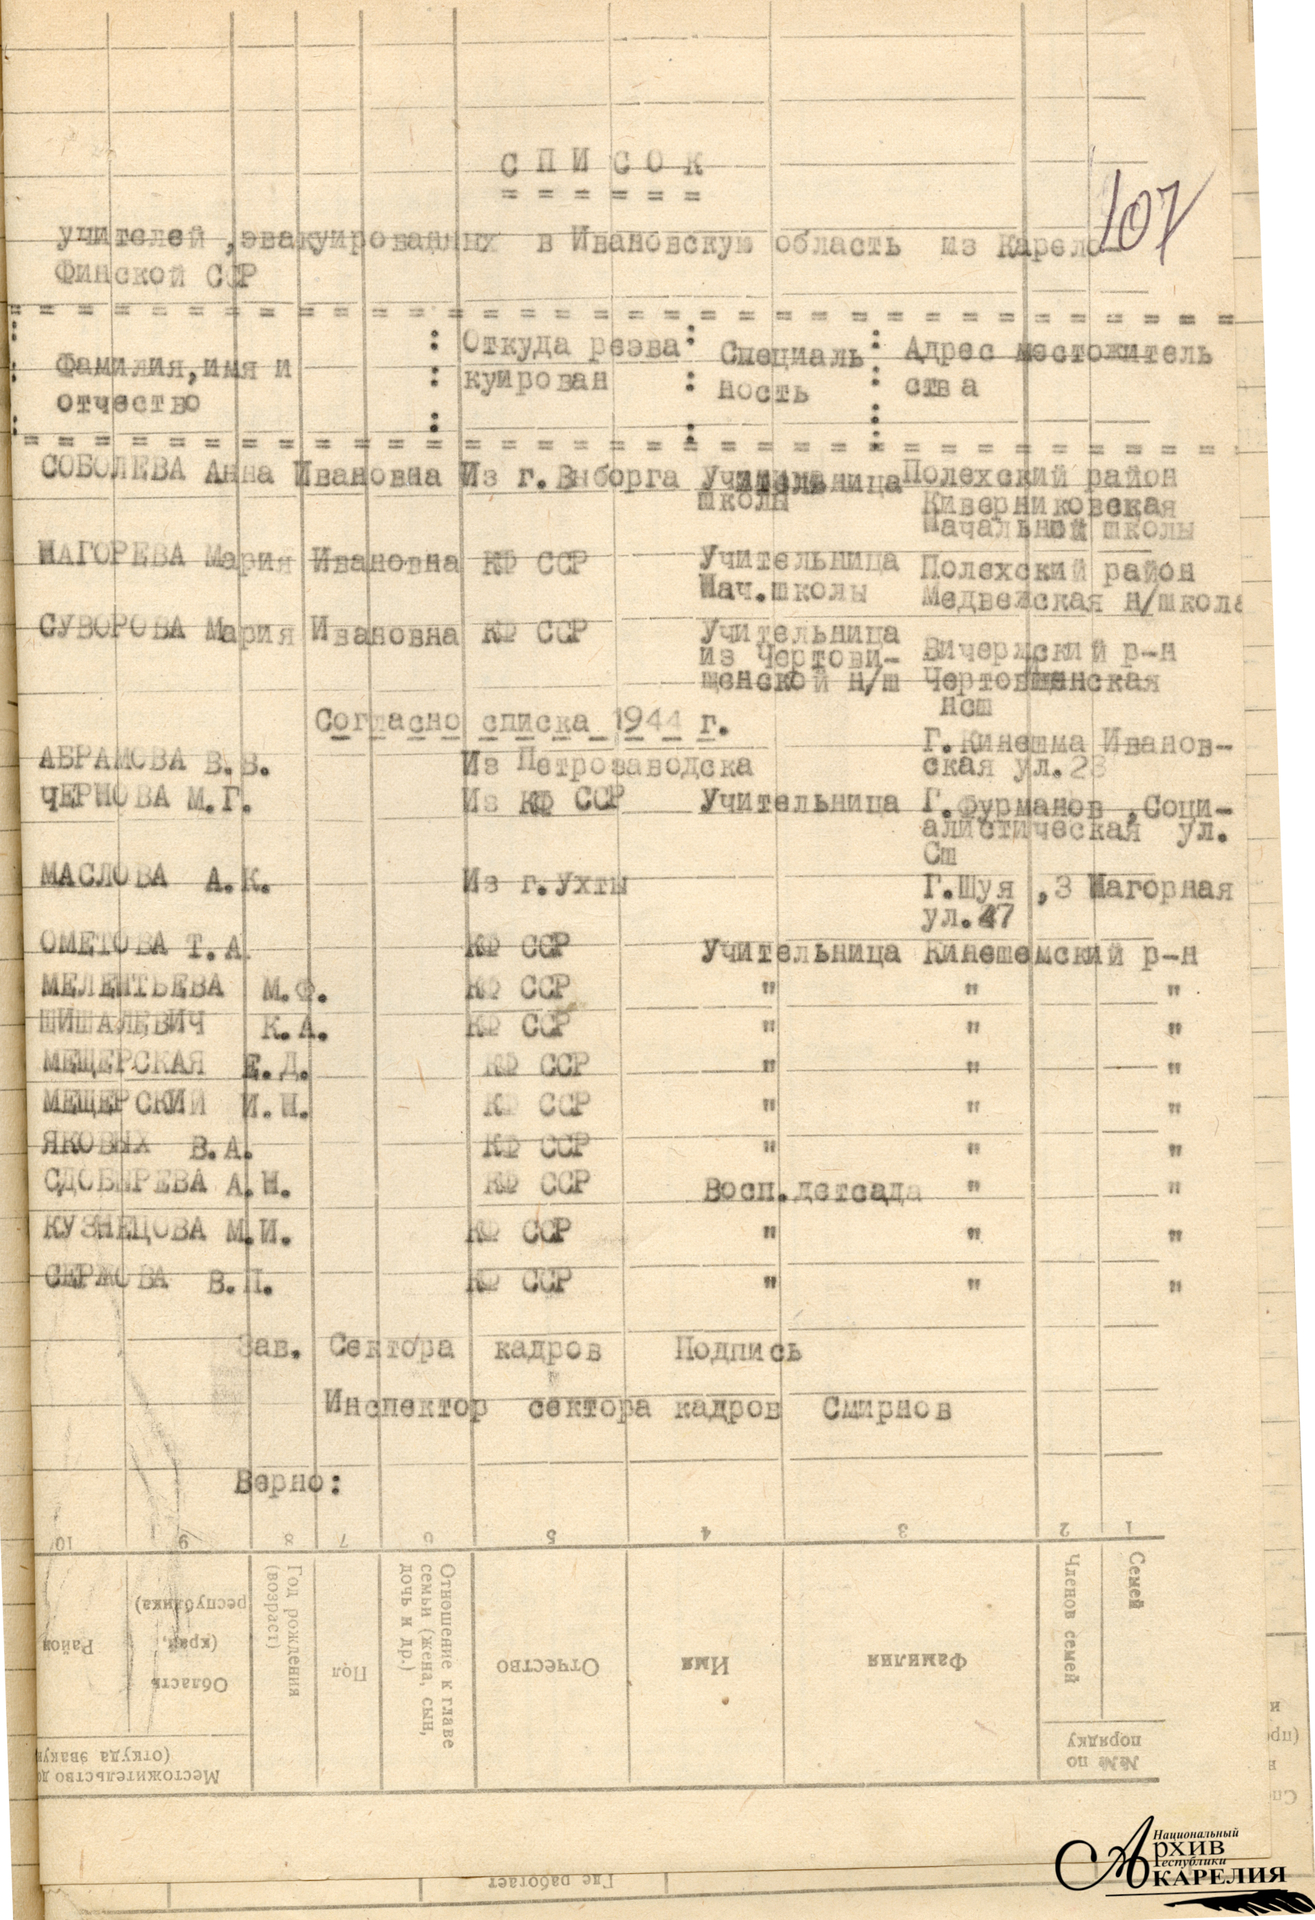 СПИСОК
======
107
учителей ,эвакуированных в Ивановскую область из Карело
Финской ССР
Фамилия,имя и отчество : Откуда реэва куирован : Специаль ность : Адрес местожитель ства
СОБОЛЕВА Анна Ивановна Из г.Выборга Учительница Полехский район
школы Киверниковская
Начальной школы
НАГОРЕВА Мария Ивановна КФ ССР Учительница Полехский район
Нач.школы Медвейская н/школа
СУВОРОВА Мария Ивановна КФ ССР Учительница
из Чертови- Вичержский р-н
щенской н/ш Чертовщинская
нсш
Согласно списка 1944 г.
АБРАМОВА В.В. Из Петрозаводска Г.Кинешма Иванов-
ская ул.28
ЧЕРНОВА М.Г. Из КФ ССР Учительница Г.Фурманов ,Соци-
алистическая ул.
Сш
МАСЛОВА А.К. Из г.Ухты Г.Шуя ,3 Нагорная
ул.47
ОМЕТОВА Т.А КФ ССР Учительница Кинешемский р-н
МЕЛЕНТЬЕВА М.Ф. КФ ССР " " "
ШИШАЛЕВИЧ К.А. КФ ССР " " "
МЕЩЕРСКАЯ Е.Д. КФ ССР " " "
МЕЩЕРСКИЙ И.Н. КФ ССР " " "
ЯКОВЫХ В.А. КФ ССР " " "
СДОБЫРЕВА А.Н. КФ ССР Восп.детсада " "
КУЗНЕЦОВА М.И. КФ ССР " " "
СЕРЖОВА В.П. КФ ССР " " "
Зав. Сектора кадров Подпись
Инспектор сектора кадров Смирнов
Верно:
10 9 8 7 6 5 4 3 2 1
Семей
Членов семей
№№ по порядку
Фамилия
Имя
Отчество
Отношение к главе семьи (жена, сын, дочь и др.)
Пол
Год рождения (возраст)
Область (край, республика)
Район
Местожительство до
(откуда эваку
Где работает
Национальный
Архив
Республики
Карелия